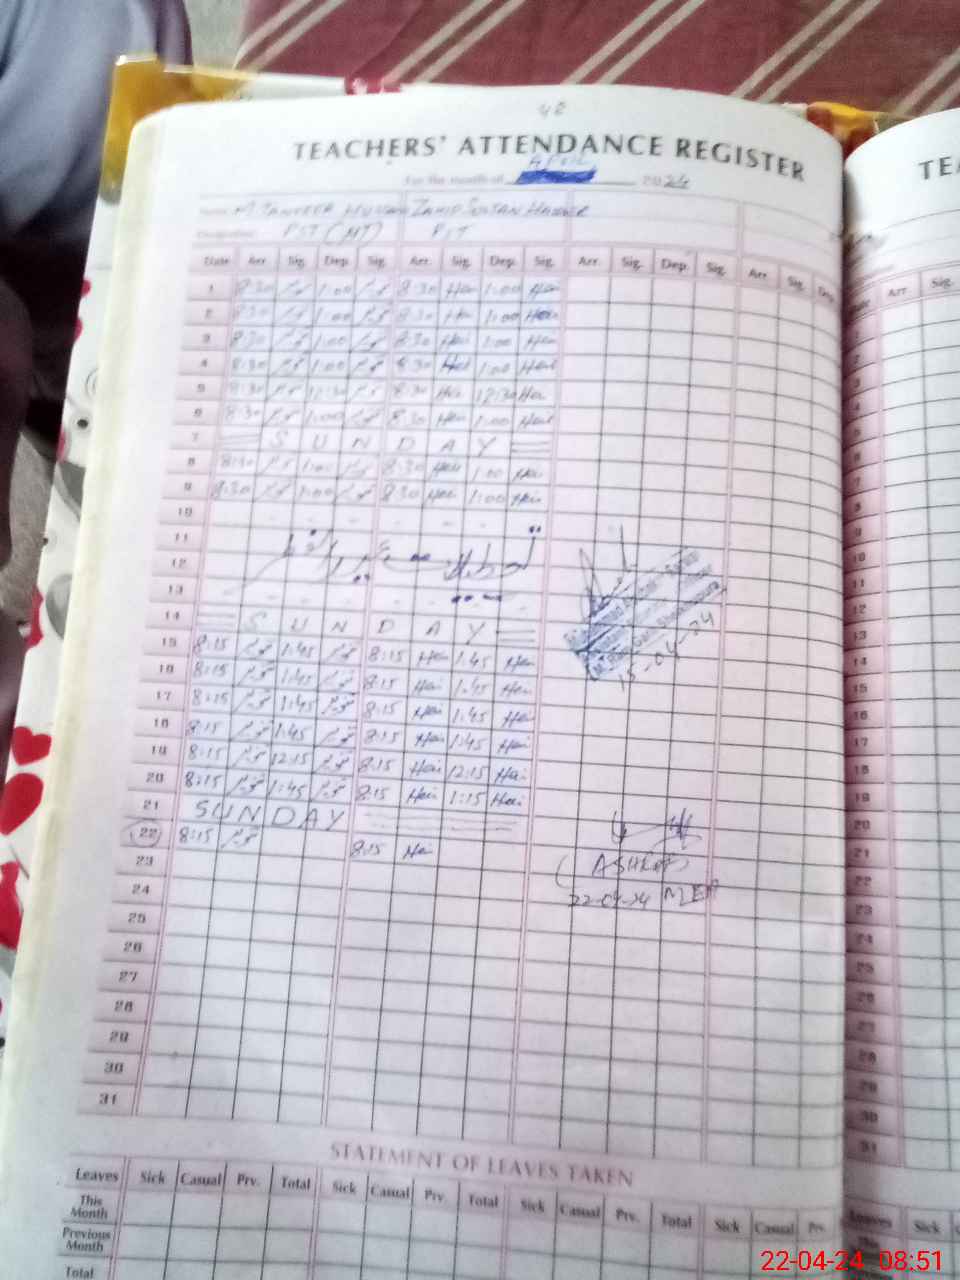 42
TEACHERS' ATTENDANCE REGISTER
APRIL
For the month of 2024
Name M. TANVEER HUSSAIN ZAHID SULTAN HAIDER
Designation PST (MT) PST
Date Arr. Sig. Dep. Sig. Arr. Sig. Dep. Sig. Arr. Sig. Dep. Sig. Arr. Sig. Dep.
1 8:30 1:00 8:30 Hai 1:00 Hai
2 8:30 1:00 8:30 Hai 1:00 Hai
3 8:30 1:00 8:30 Hai 1:00 Hai
4 8:30 1:00 8:30 Hai 1:00 Hai
5 8:30 12:30 8:30 Hai 12:30 Hai
6 8:30 1:00 8:30 Hai 1:00 Hai
7 S U N D A Y
8 8:30 1:00 8:30 Hai 1:00 Hai
9 8:30 1:00 8:30 Hai 1:00 Hai
10
11
12
13
14 S U N D A Y
15 8:15 1:45 8:15 Hai 1:45 Hai
16 8:15 1:45 8:15 Hai 1:45 Hai
17 8:15 1:45 8:15 Hai 1:45 Hai
18 8:15 1:45 8:15 Hai 1:45 Hai
19 8:15 12:15 8:15 Hai 12:15 Hai
20 8:15 1:45 8:15 Hai 1:15 Hai
21 SUNDAY
22 8:15 8:15 Hai
23
24
25
26
27
28
29
30
31
15-04-24
(ASHRAF)
22-04-24 MEA
STATEMENT OF LEAVES TAKEN
Leaves Sick Casual Prv. Total Sick Casual Prv. Total Sick Casual Prv. Total Sick Casual Prv.
This Month
Previous Month
Total
TEA
Arr Sig.
Leaves Sick
22-04-24 08:51